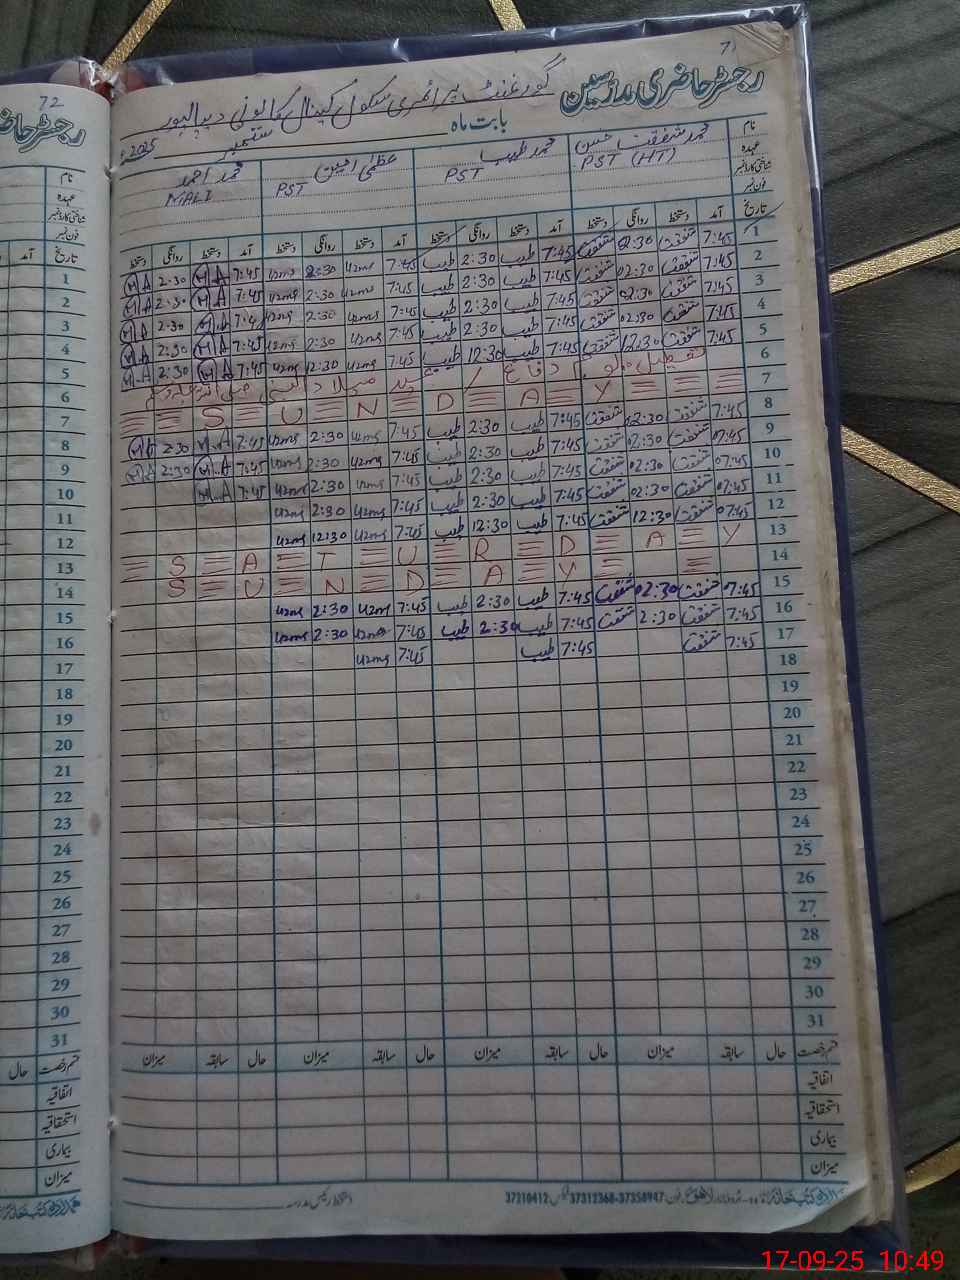 71
رجسٹر حاضری مدرسین
گورنمنٹ پرائمری سکول کینال کالونی دیپالپور
بابت ماہ ستمبر 2025ء
نام محمد شفقت حسین محمد طیب عظمیٰ امین محمد احمد
عہدہ PST (HT) PST PST MALI
شناختی کارڈ نمبر
فون نمبر
تاریخ آمد دستخط روانگی دستخط آمد دستخط روانگی دستخط آمد دستخط روانگی دستخط آمد دستخط روانگی دستخط
1 7:45 شفقت 02:30 شفقت 7:45 طیب 2:30 طیب 7:45 uzma 2:30 uzma 7:45 M.A 2:30 M.A
2 7:45 شفقت 02:30 شفقت 7:45 طیب 2:30 طیب 7:45 uzma 2:30 uzma 7:45 M.A 2:30 M.A
3 7:45 شفقت 02:30 شفقت 7:45 طیب 2:30 طیب 7:45 uzma 2:30 uzma 7:45 M.A 2:30 M.A
4 7:45 شفقت 02:30 شفقت 7:45 طیب 2:30 طیب 7:45 uzma 2:30 uzma 7:45 M.A 2:30 M.A
5 7:45 شفقت 12:30 شفقت 7:45 طیب 12:30 طیب 7:45 uzma 12:30 uzma 7:45 M.A 2:30 M.A
6 تعطیل دفاع / عید میلاد النبی
7 S U N D A Y
8 7:45 شفقت 02:30 شفقت 7:45 طیب 2:30 طیب 7:45 uzma 2:30 uzma 7:45 M.A 2:30 M.A
9 07:45 شفقت 02:30 شفقت 7:45 طیب 2:30 طیب 7:45 uzma 2:30 uzma 7:45 M.A 2:30 M.A
10 07:45 شفقت 02:30 شفقت 7:45 طیب 2:30 طیب 7:45 uzma 2:30 uzma 7:45 M.A
11 07:45 شفقت 02:30 شفقت 7:45 طیب 2:30 طیب 7:45 uzma 2:30 uzma
12 07:45 شفقت 12:30 شفقت 7:45 طیب 12:30 طیب 7:45 uzma 12:30 uzma
13 S A T U R D A Y
14 S U N D A Y
15 07:45 شفقت 02:30 شفقت 7:45 طیب 2:30 طیب 7:45 uzma 2:30 uzma
16 7:45 شفقت 2:30 شفقت 7:45 طیب 2:30 طیب 7:45 uzma 2:30 uzma
17 7:45 شفقت 7:45 طیب 7:45 uzma
18
19
20
21
22
23
24
25
26
27
28
29
30
31
قسم رخصت حال سابقہ میزان حال سابقہ میزان حال سابقہ میزان حال سابقہ میزان
اتفاقیہ
استحقاقیہ
بیماری
میزان
37210412 فیکس 37312368-37358947 فون
دستخط رئیس مدرسہ
72
نام
عہدہ
شناختی کارڈ نمبر
فون نمبر
تاریخ آمد
1
2
3
4
5
6
7
8
9
10
11
12
13
14
15
16
17
18
19
20
21
22
23
24
25
26
27
28
29
30
31
قسم رخصت حال
اتفاقیہ
استحقاقیہ
بیماری
میزان
17-09-25 10:49